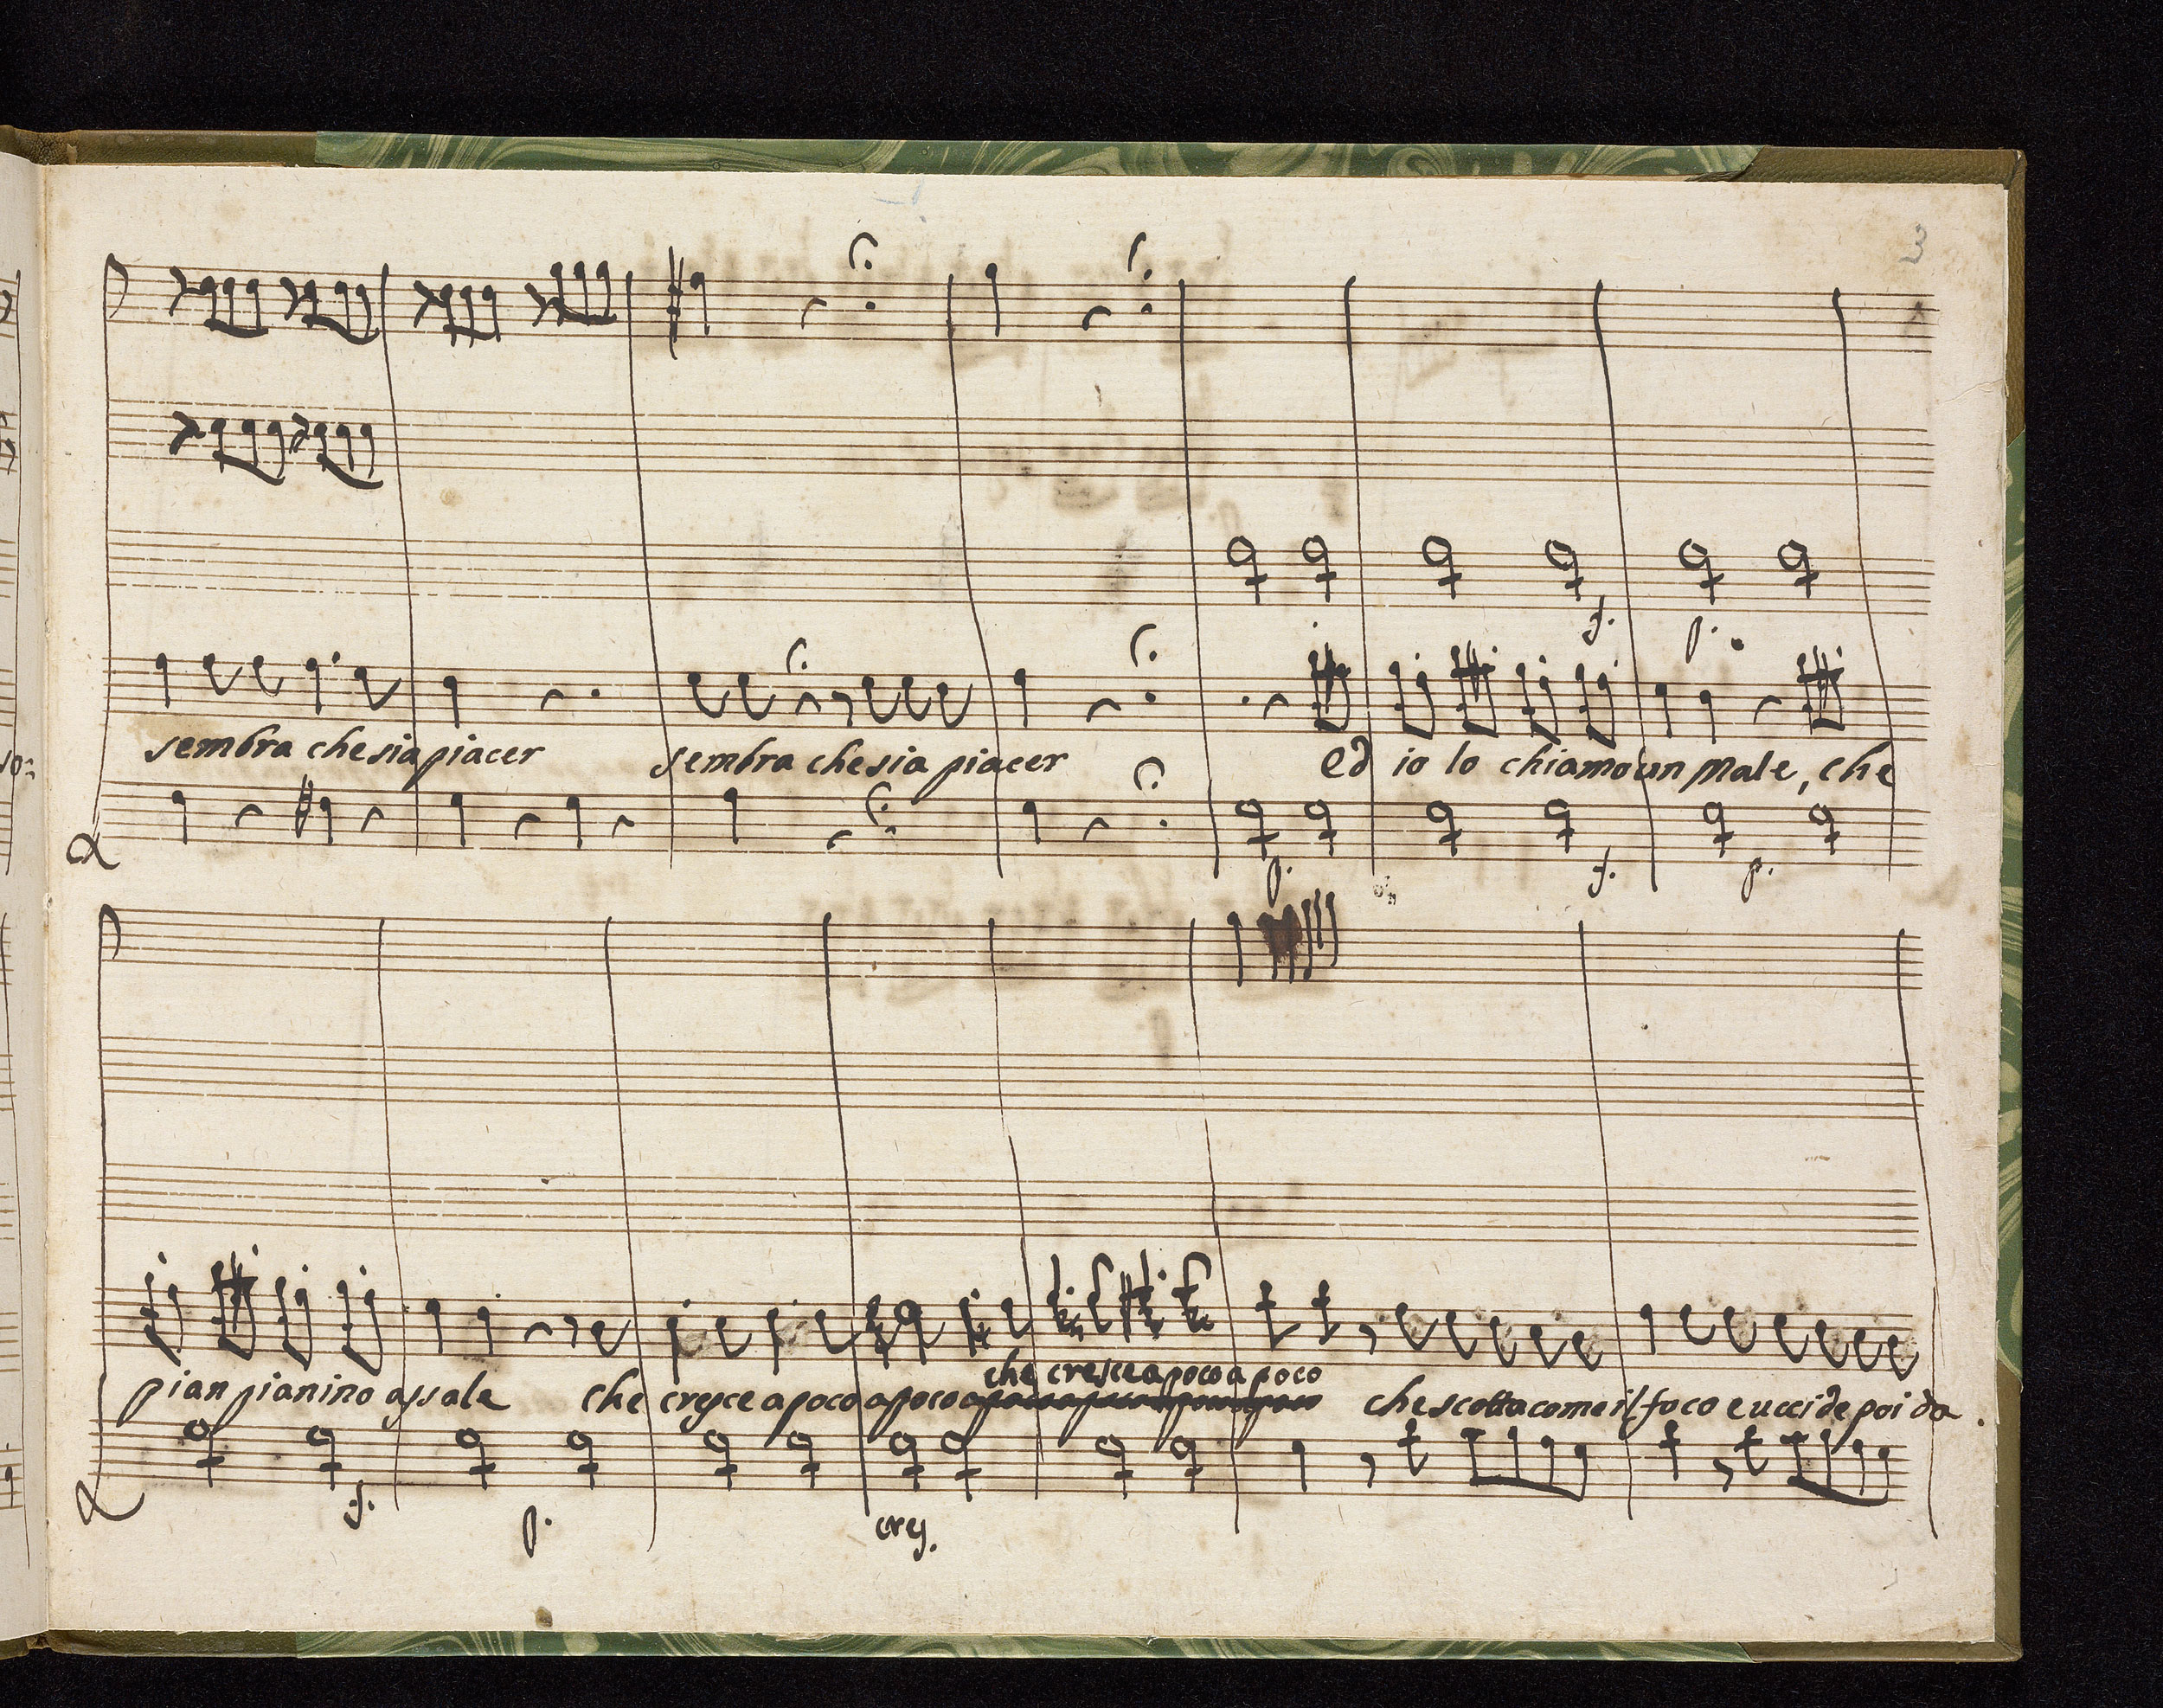 3
f. p.
so:
sembra che sia piacer sembra che sia piacer ed io lo chiamo un male, che
p. f. p.
che cresce a poco a poco
pian pianino assale che cresce a poco a poco che scotta come il foco e uccide poi da
f. p. cres.